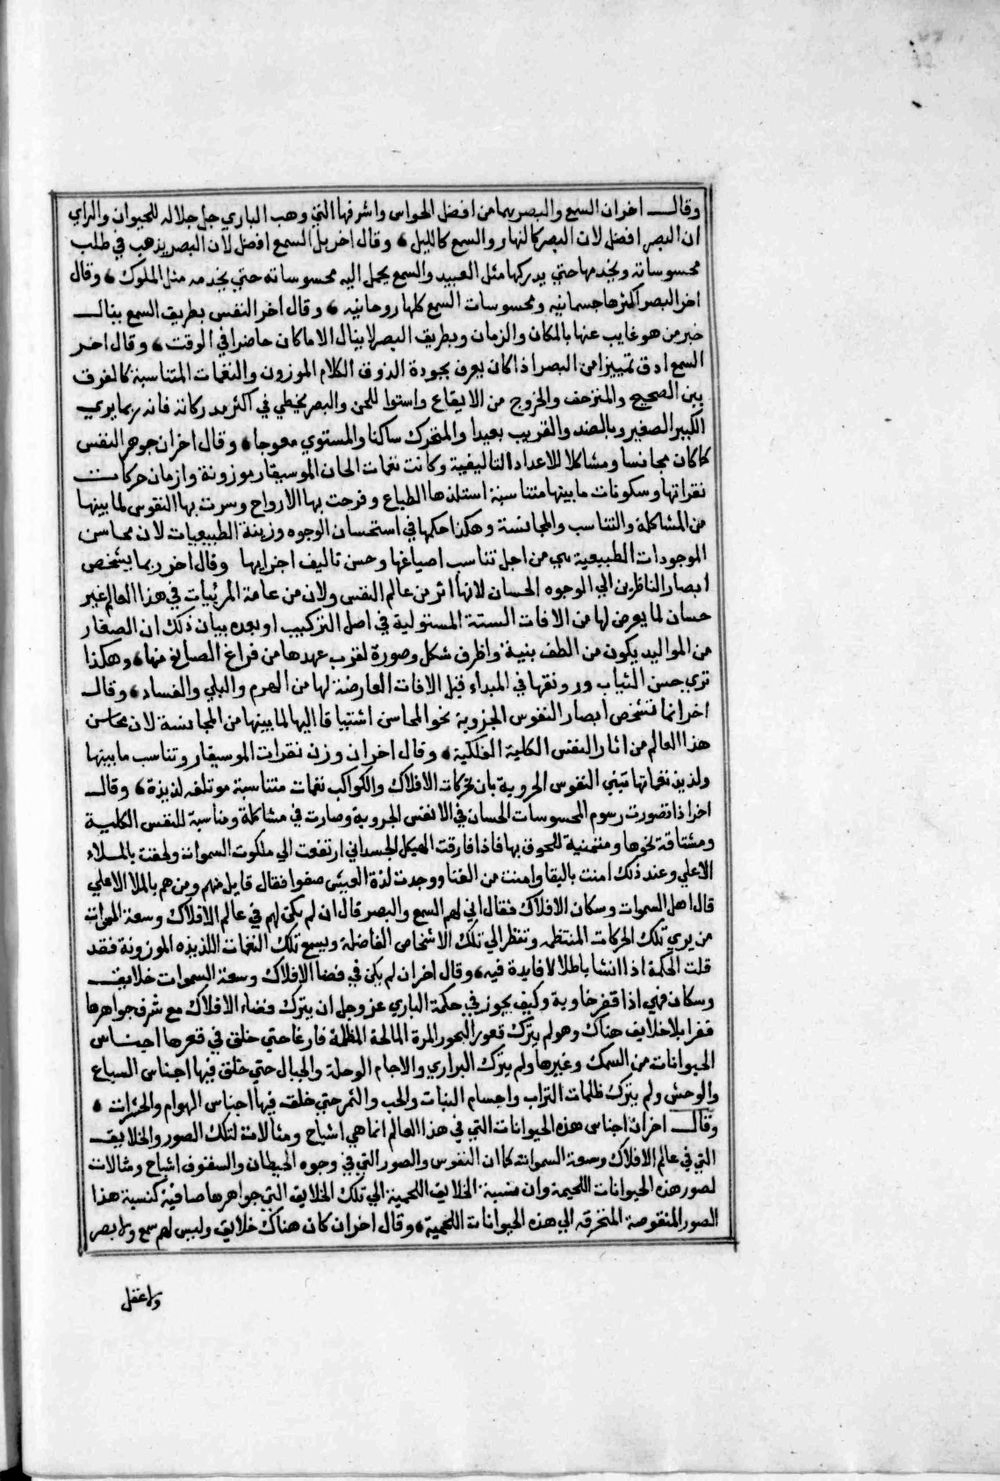 وقال اخر ان السمع والبصر هما من افضل الحواس واشرفها التي وهب الباري جل جلاله للحيوان والراي
ان البصر افضل لان البصر كالنهار والسمع كالليل، وقال اخر بل السمع افضل لان البصر يذهب في طلب
محسوساته ويخدمها حتي يدركها مثل العبيد والسمع يحمل اليه محسوساته حتي يخدمه مثل الملوك، وقال
اخر البصر اكثرها جسمانيه ومحسوسات السمع كلها روحانيه، وقال اخر النفس بطريق السمع ينال
خبر من هو غايب عنها بالمكان والزمان وبطريق البصر لا ينال الا ما كان حاضرا في الوقت، وقال اخر
السمع ادق تمييزا من البصر اذا كان يعرف بجودة الذوق الكلام الموزون والنغمات المتناسبة كالفرق
بين الصحيح والمنزحف والخروج من الايقاع واستوا اللحن والبصر يخطي في اكثر مدركاته فانه ربما يري
الكبير الصغير وبالضد والقريب بعيدا والمتحرك ساكنا والمستوي معوجا، وقال اخر ان جوهر النفس
كا كان مجانسا ومشاكلا للاعداد التاليفية وكانت نغمات الحان الموسيقار موزونة وازمان حركات
نقراتها وسكونات ما بينها متناسبة استلذها الطباع وفرحت بها الارواح وسرت بها النفوس لما بينها
من المشاكلة والتناسب والمجانسة وهكذا حكمها في استحسان الوجوه وزينة الطبيعيات لان محاسن
الموجودات الطبيعية هي من اجل تناسب اصباغها وحسن تاليف اجزايها وقال اخر ربما يشخص
ابصار الناظرين الي الوجوه الحسان لانها اثر من عالم النفس ولان من عامة المرئيات في هذا العالم غير
حسان لما يعرض لها من الافات الستة المستولية في اصل التركيب او بعده بيان ذكك ان الصغار
من المواليد يكون من الطف بنية واظرف شكل وصورة لقرب عهدها من فراغ الصانع منها، وهكذا
تري حسن الثياب ورونقها في المبداء قبل الافات العارضة لها من الهرم والبلي والفساد، وقال
اخر انما تشخص ابصار النفوس الجزوية نحو المحاسن اشتياقا اليها لما بينها من المجانسة لان محاسن
هذا العالم من اثار النفس الكلية الفلكية، وقال اخر ان وزن نقرات الموسيقار وتناسب ما بينها
ولذيذ نغماتها تبني النفوس الجروية بان تحركات الافلاك والكواكب نغمات متناسبة موتلفه لذيذة، وقال
اخر اذا تصورت رسوم المحسوسات الحسان في الانفس الجروية وصارت في مشاكلة ومناسبة للنفس الكلية
ومشتاقة نحوها ومتمنية للحوق بها فاذا فارقت الهيكل الجسداني ارتفعت الي ملكوت السموات ولحقت بالملاء
الاعلي وعند ذلك امنت بالبقا وامنت من الفنا ووجدت لذة العيش صفوا فقال قايل منهم ومن هم بالملا الاعلي
قال اهل السموات وسكان الافلاك فقال اني لهم السمع والبصر قال ان لم يكن لهم في عالم الافلاك وسعة السموات
من يري تلك الحركات المنتظمه وتنظر الي تلك الاشخاص الفاضلة ويسمع تلك النغمات اللذيذه الموزونة فقد
قلت الحكمة اذا انشا باطلا لا فايدة فيه، وقال اخر ان لم يكن في فضا الافلاك وسعة السموات خلايق
وسكان فهي اذا قفر خاوية وكيف يجوز في حكمة الباري عز وجل ان يترك فضاء الافلاك مع شرف جواهرها
قفرا بلا خلايف هناك وهو لم يترك قعور البحور المرة المالحة المظلمة فارغا حتي خلق في قعرها اجناس
الحيوانات من السمك وغيرها ولم يترك البراري والاجام الوحلة والجبال حتي خلق فيها اجناس السباع
والوحش ولم يترك ظلمات التراب واجسام النبات والحب والثمر حتي خلق فيها اجناس الهوام والحشرات،
وقال اخر ان اجناس هذه الحيوانات التي في هذا العالم انما هي اشباح ومثالات لتلك الصور والخلايق
التي في عالم الافلاك وسعة السموات كما ان النفوس والصور التي في وجوه الحيطان والسقوف اشباح ومثالات
لصور هذه الحيوانات اللحيمة وان نسبة الخلايق اللحمية الي تلك الخلايق التي جواهرها صافية كنسبة هذا
الصور المنقوصة المنخرقه الي هذه الحيوانات اللحمية، وقال اخر ان كان هناك خلايق وليس لهم سمع ولا بصر
ولا عقل